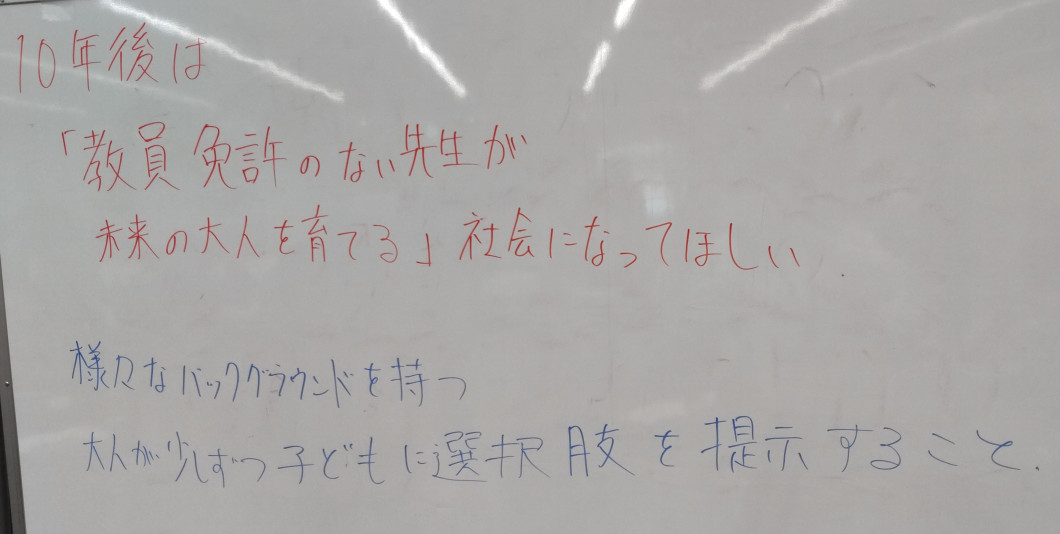 10年後は
「教員免許のない先生が
未来の大人を育てる」社会になってほしい
様々なバックグラウンドを持つ
大人が少しずつ子どもに選択肢を提示すること.